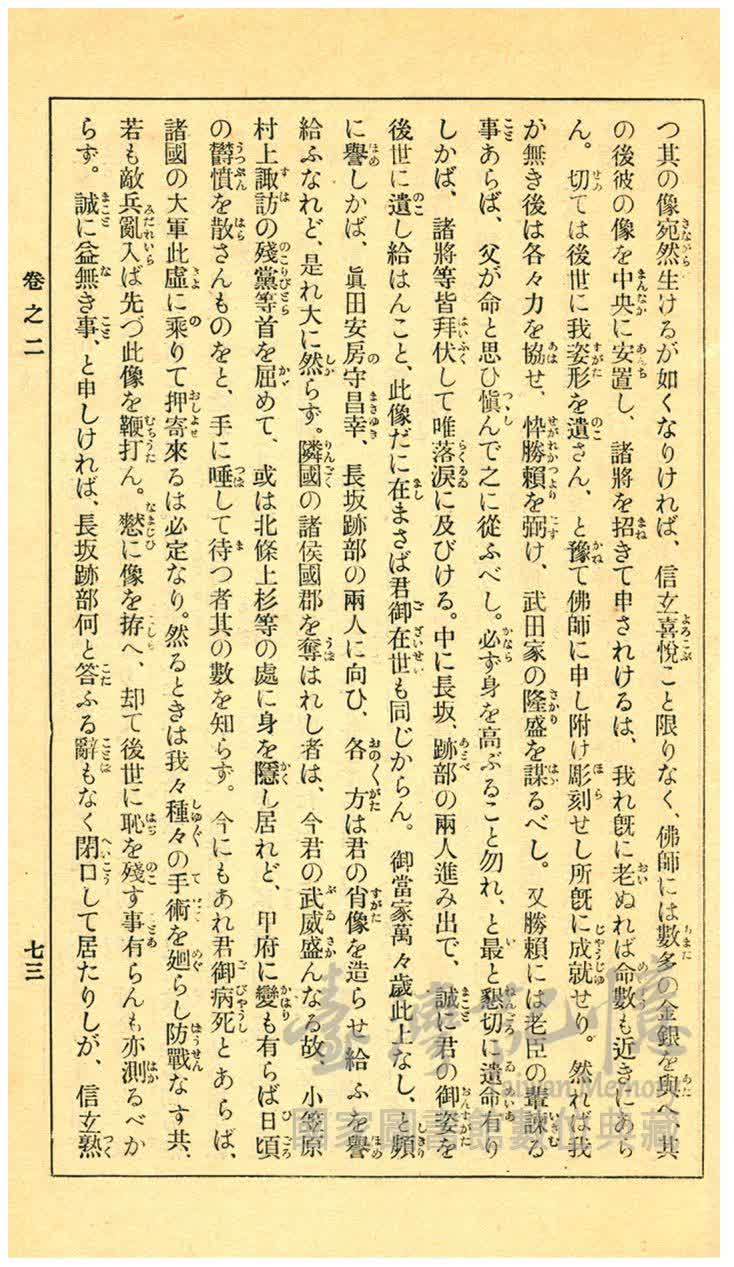 つ其の像宛然生けるが如くなりければ、信玄喜悅こと限りなく、佛師には數多の金銀を與へ、其
の後彼の像を中央に安置し、諸將を招きて申されけるは、我れ旣に老ぬれば命數も近きにあら
ん。切ては後世に我姿形を遺さん、と豫て佛師に申し附け彫刻せし所旣に成就せり。然れば我
が無き後は各々力を協せ、忰勝賴を弼け、武田家の隆盛を謀るべし。又勝賴には老臣の輩諫る
事あらば、父が命と思ひ愼んで之に從ふべし。必ず身を高ぶること勿れ、と最と懇切に遺命有り
しかば、諸將等皆拜伏して唯落淚に及びける。中に長坂、跡部の兩人進み出で、誠に君の御姿を
後世に遺し給はんこと、此像だに在まさば君御在世も同じからん。御當家萬々歲此上なし、と頻
に譽しかば、眞田安房守昌幸、長坂跡部の兩人に向ひ、各〻方は君の肖像を造らせ給ふを譽
給ふなれど、是れ大に然らず。隣國の諸侯國郡を奪はれし者は、今君の武威盛んなる故、小笠原
村上諏訪の殘黨等首を屈めて、或は北條上杉等の處に身を隱し居れど、甲府に變も有らば日頃
の欝憤を散さんものをと、手に唾して待つ者其の數を知らず。今にもあれ君御病死とあらば、
諸國の大軍此虛に乘りて押寄來るは必定なり。然るときは我々種々の手術を廻らし防戰なす共、
若も敵兵亂入ば先づ此像を鞭打ん。憖に像を拵へ、却て後世に恥を殘す事有らんも亦測るべか
らず。誠に益無き事、と申しければ、長坂跡部何と答ふる辭もなく閉口して居たりしが、信玄熟
卷之二
七三
臺灣記憶
Taiwan Memory
國家圖書館數位典藏